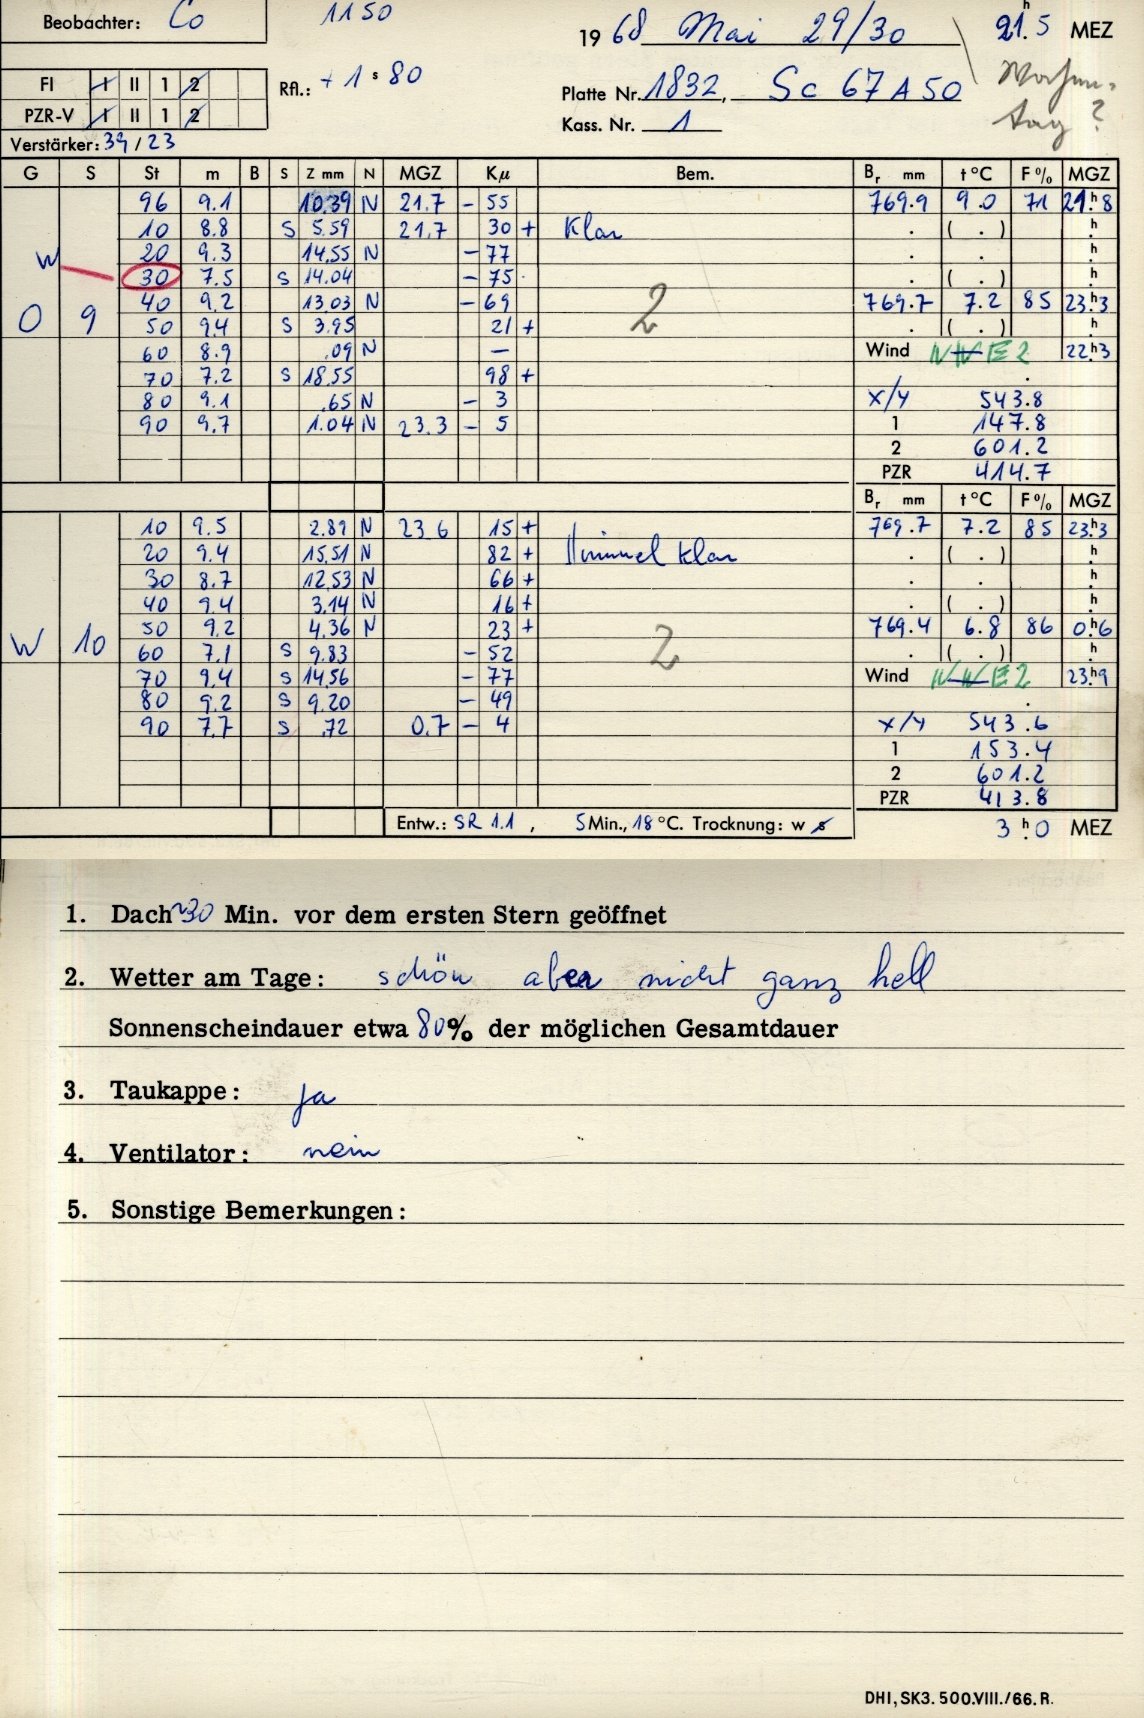 Beobachter: Co 1150 1968 Mai 29/30 21.h5 MEZ
FI I II 1 2 Rfl.: +1s80 Platte Nr. 1832, Sc 67 A 50
PZR-V I II 1 2 Kass. Nr. 1
Verstärker: 39/23
G S St m B S Z mm N MGZ Kμ Bem. Br mm t°C F% MGZ
96 9.1 10.39 N 21.7 - 55 769.9 9.0 71 21.h8
10 8.8 S 5.59 21.7 30 + Klar . ( . ) h
20 9.3 14.55 N - 77 . . h
W 30 7.5 S 14.04 - 75 . ( . ) h
40 9.2 13.03 N - 69 769.7 7.2 85 23.h3
O 9 50 9.4 S 3.95 21 + 2 . ( . ) h
60 8.9 .09 N - Wind NW E 2 22.h3
70 7.2 S 18.55 98 +
80 9.1 .65 N - 3 x/y 543.8
90 9.7 1.04 N 23.3 - 5 1 147.8
2 601.2
PZR 414.7
Br mm t°C F% MGZ
10 9.5 2.89 N 23.6 15 + 769.7 7.2 85 23.h3
20 9.4 15.51 N 82 + Himmel klar . ( . ) h
30 8.7 12.53 N 66 + . . h
40 9.4 3.14 N 16 + . ( . ) h
50 9.2 4.36 N 23 + 769.4 6.8 86 0.h6
W 10 60 7.1 S 9.83 - 52 2 . ( . ) h
70 9.4 S 14.56 - 77 Wind NW E 2 23.h9
80 9.2 S 9.20 - 49
90 7.7 S .72 0.7 - 4 x/y 543.6
1 153.4
2 601.2
PZR 413.8
Entw.: SR 1.1, 5 Min., 18 °C. Trocknung: w s 3h.0 MEZ
1. Dach ~30 Min. vor dem ersten Stern geöffnet
2. Wetter am Tage: schön aber nicht ganz hell
Sonnenscheindauer etwa 80% der möglichen Gesamtdauer
3. Taukappe: ja
4. Ventilator: nein
5. Sonstige Bemerkungen:
DHI, SK3. 500.VIII./66. R.